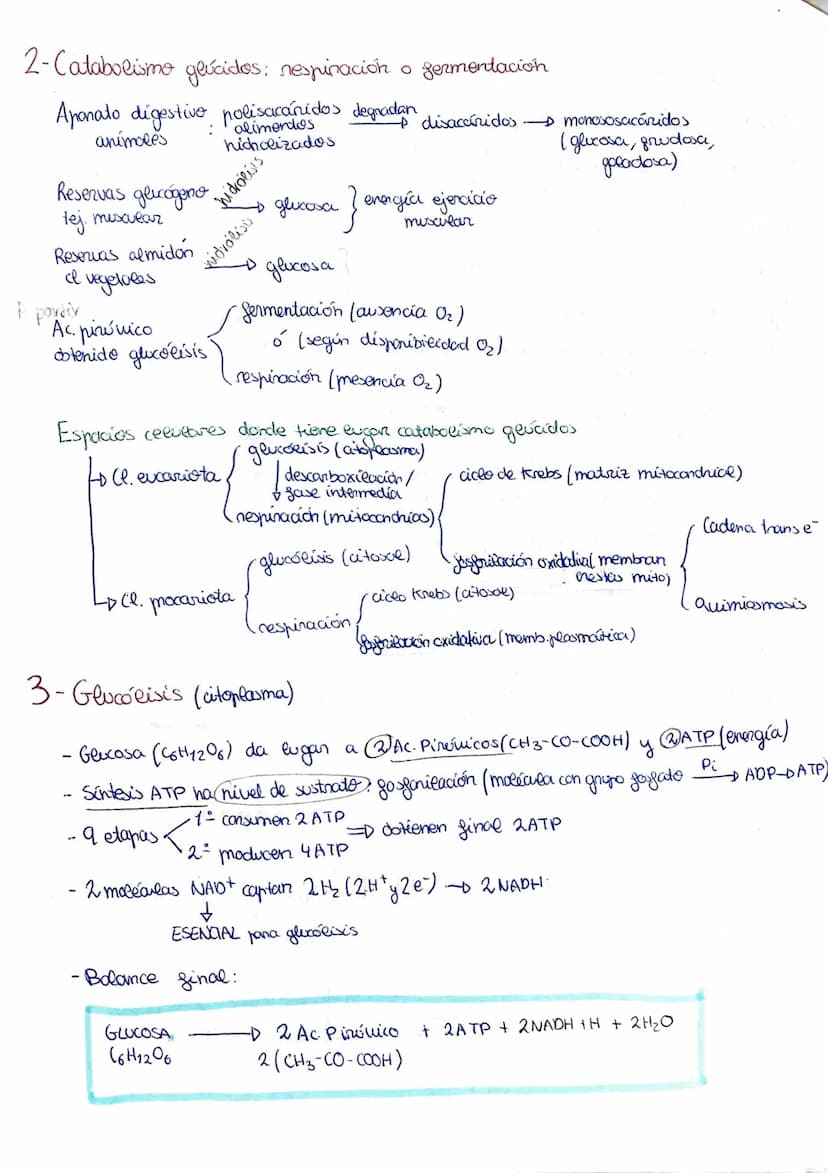 2-Catabolismo glúcidos: respiración o fermentación
Aparato digestivo : polisacáridos degradan → disacáridos → monososacáridos
animales alimentos (glucosa, frudosa,
hidrolizados galadosa)
Reservas glucógeno hidrólisis → glucosa } energía ejercicio
tej. muscular muscular
Reservas almidón hidrólisis → glucosa
cl vegetales
A partir
Ac. pirúvico fermentación (ausencia O2)
obtenido glucólisis ó (según disponibilidad O2)
respiración (presencia O2)
Espacios celulares donde tiene lugar catabolismo glúcidos
→ Cl. eucariota glucólisis (citoplasma)
descarboxilación/
fase intermedia
respiración (mitocondrias)
ciclo de Krebs (matriz mitocondrial)
fosforilación oxidativa (membran
crestas mito)
Cadena trans e-
Quimiosmosis
→ Cl. procariota glucólisis (citosol)
respiración
ciclo Krebs (citosol)
fosforilación oxidativa (memb. plasmática)
3- Glucólisis (citoplasma)
- Glucosa (C6H12O6) da lugar a 2 Ac. Pirúvicos (CH3-CO-COOH) y 2 ATP (energía)
- Síntesis ATP na nivel de sustrato: fosforilación (molécula con grupo fosfato Pi → ADP→ATP)
- 9 etapas 1º consumen 2 ATP ⇒ obtienen final 2ATP
2º producen 4 ATP
- 2 moléculas NAD+ captan 2H2 (2H+ y 2e-) → 2 NADH
↓
ESENCIAL para glucólisis
- Balance final:
GLUCOSA → 2 Ac. Pirúvico + 2ATP + 2NADH + H + 2H2O
C6H12O6 2 (CH3-CO-COOH)